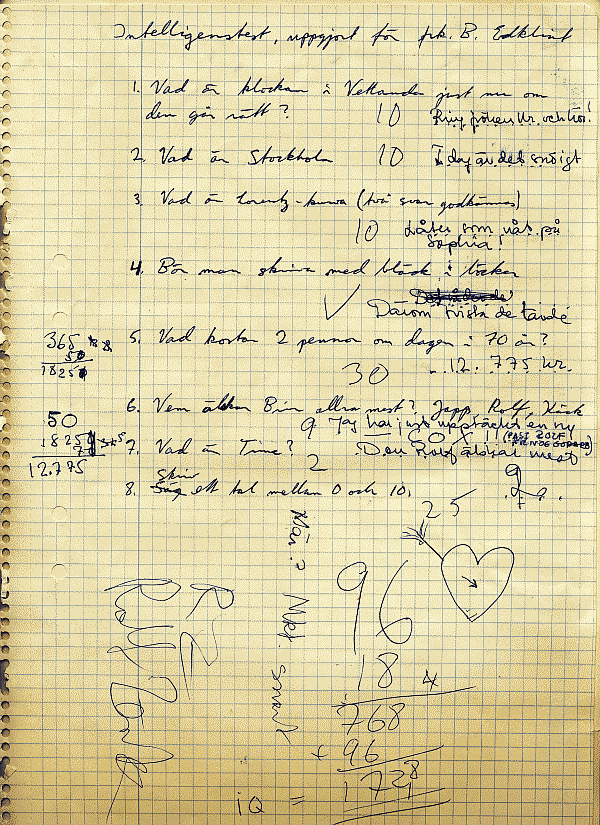 Intelligenstest, uppgjort för frk. B. Edklint
1. Vad är klockan i Vetlanda just nu om
den går rätt?
10
Ring fröken Ur och hör!
2. Vad är Stockholm
10
I dag är det snöigt
3. Vad är Lorentz-kurva (två svar godkännes)
10
Låter som nåt på
Sophia!
4. Bör man skriva med bläck i böcker
Därom tvista de lärde
365
50
1825
5. Vad kostar 2 pennor om dagen i 70 år?
30
12.775 kr.
6. Vem älskar Bin allra mest? Japp, Rolf, Käck
9 Jag har just upptäckt en ny
50
1825
12.775
7. Vad är Time?
2
50 X 11
Den Rolf älskar mest
8. Skriv ett tal mellan 0 och 10.
9
25
När? Mkt. smart
96
18
4
768
+ 96
1728
iQ =